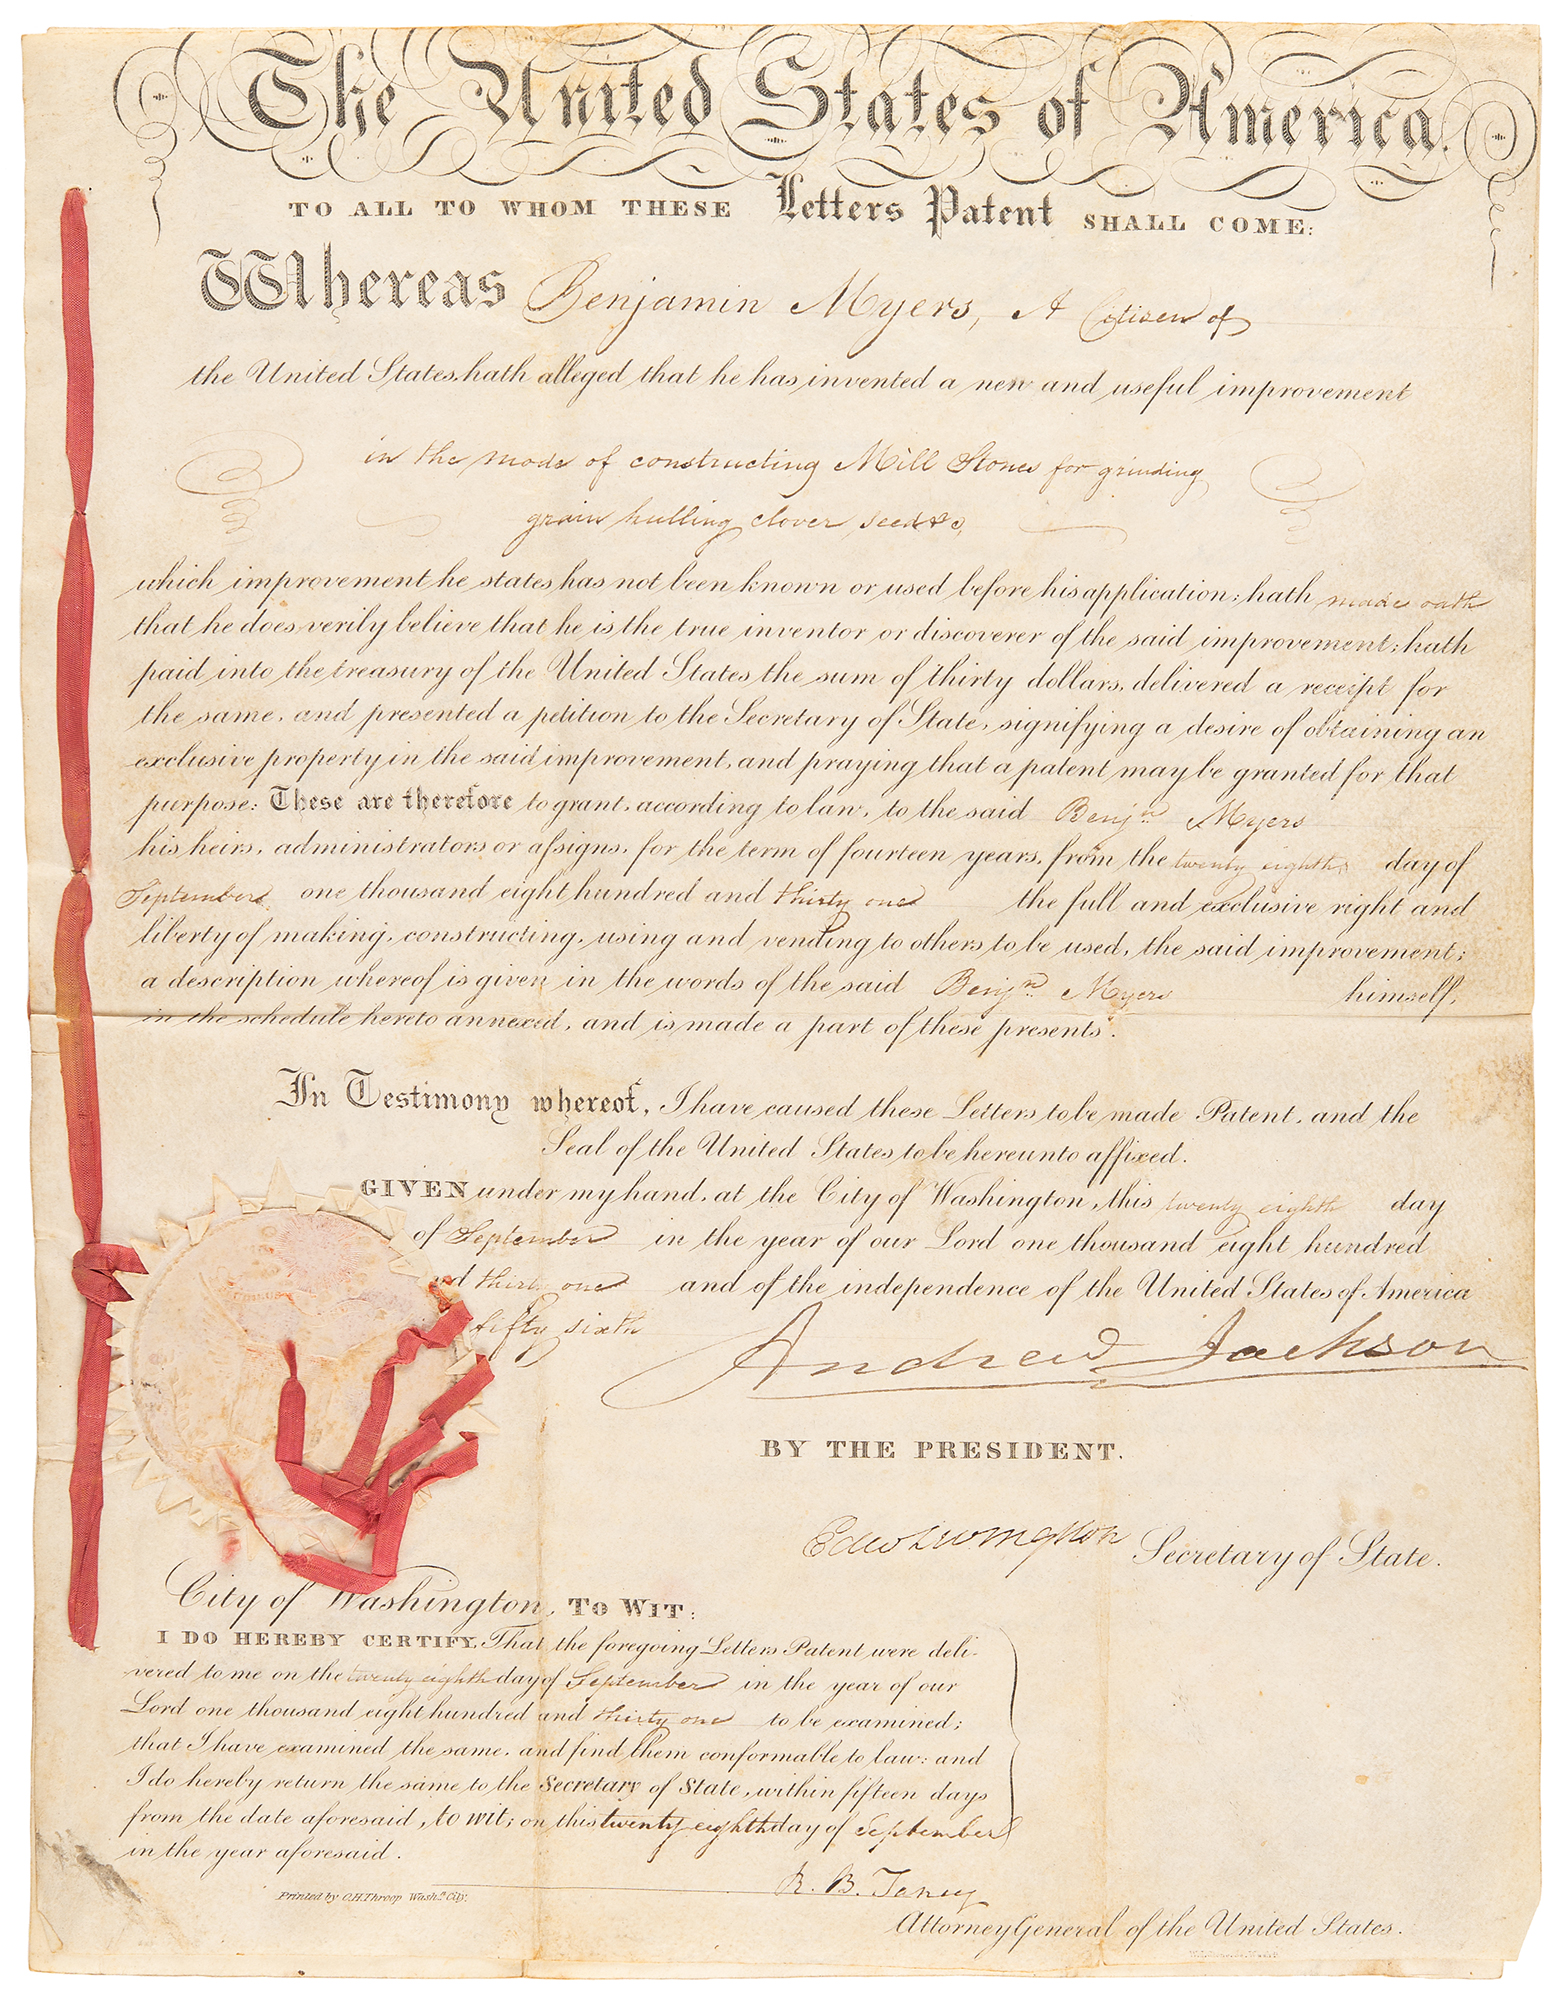 The United States of America.
TO ALL TO WHOM THESE Letters Patent SHALL COME:
Whereas Benjamin Myers, A Citizen of
the United States, hath alleged that he has invented a new and useful improvement
in the mode of constructing Mill Stones for grinding
grain hulling clover seed &c,
which improvement he states has not been known or used before his application; hath made oath
that he does verily believe that he is the true inventor or discoverer of the said improvement; hath
paid into the treasury of the United States the sum of thirty dollars, delivered a receipt for
the same, and presented a petition to the Secretary of State, signifying a desire of obtaining an
exclusive property in the said improvement, and praying that a patent may be granted for that
purpose: These are therefore to grant, according to law, to the said Benjn. Myers
his heirs, administrators or assigns, for the term of fourteen years, from the twenty eighth day of
September one thousand eight hundred and thirty one the full and exclusive right and
liberty of making, constructing, using and vending to others to be used, the said improvement;
a description whereof is given in the words of the said Benjn. Myers himself,
in the schedule hereto annexed, and is made a part of these presents.
In Testimony whereof, I have caused these Letters to be made Patent, and the
Seal of the United States to be hereunto affixed.
GIVEN under my hand, at the City of Washington, this twenty eighth day
of September in the year of our Lord one thousand eight hundred
thirty one and of the independence of the United States of America
fifty sixth
Andrew Jackson
BY THE PRESIDENT.
Edw Livingston Secretary of State.
City of Washington, TO WIT:
I DO HEREBY CERTIFY, That the foregoing Letters Patent were deli-
vered to me on the twenty eighth day of September in the year of our
Lord one thousand eight hundred and thirty one to be examined;
that I have examined the same, and find them conformable to law: and
I do hereby return the same to the Secretary of State, within fifteen days
from the date aforesaid, to wit; on this twenty eighth day of September
in the year aforesaid.
R. B. Taney
Printed by C.H.Throop Washn. City.
Attorney General of the United States.